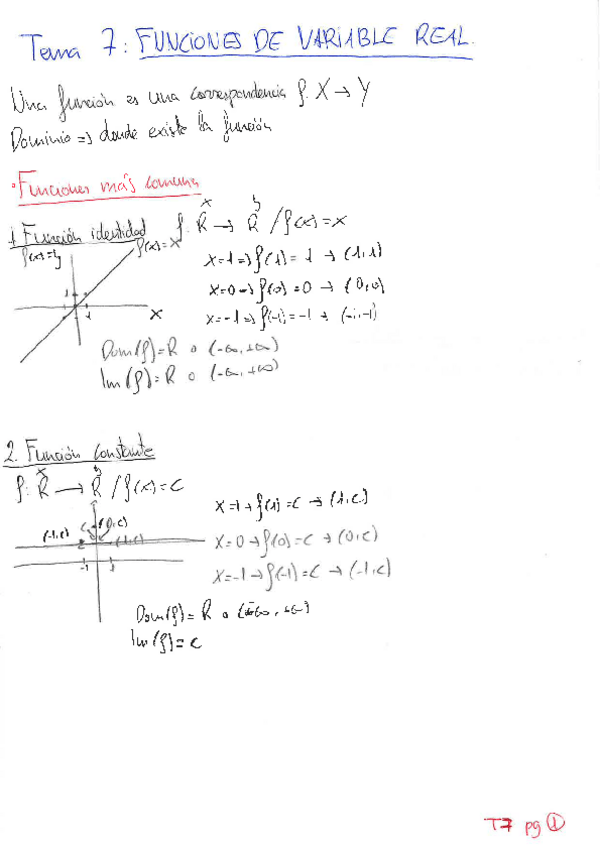 Tema 7: FUNCIONES DE VARIABLE REAL.
Una función es una correspondencia f: X → Y
Dominio => donde existe la función
• Funciones más comunes
1. Función identidad f: R → R / f(x) = x
x y
f(x)=y
f(x)=x
1
1
x
x=1 => f(1) = 1 → (1,1)
x=0 → f(0) = 0 → (0,0)
x=-1 => f(-1) = -1 → (-1,-1)
Dom(f) = R o (-∞, +∞)
Im(f) = R o (-∞, +∞)
2. Función constante
x y
f: R → R / f(x) = c
(-1,c) c (0,c) (1,c)
-1 1
x=1 → f(1) = c → (1,c)
x=0 → f(0) = c → (0,c)
x=-1 → f(-1) = c → (-1,c)
Dom(f) = R o (-∞, +∞)
Im(f) = c
T7 pg 1